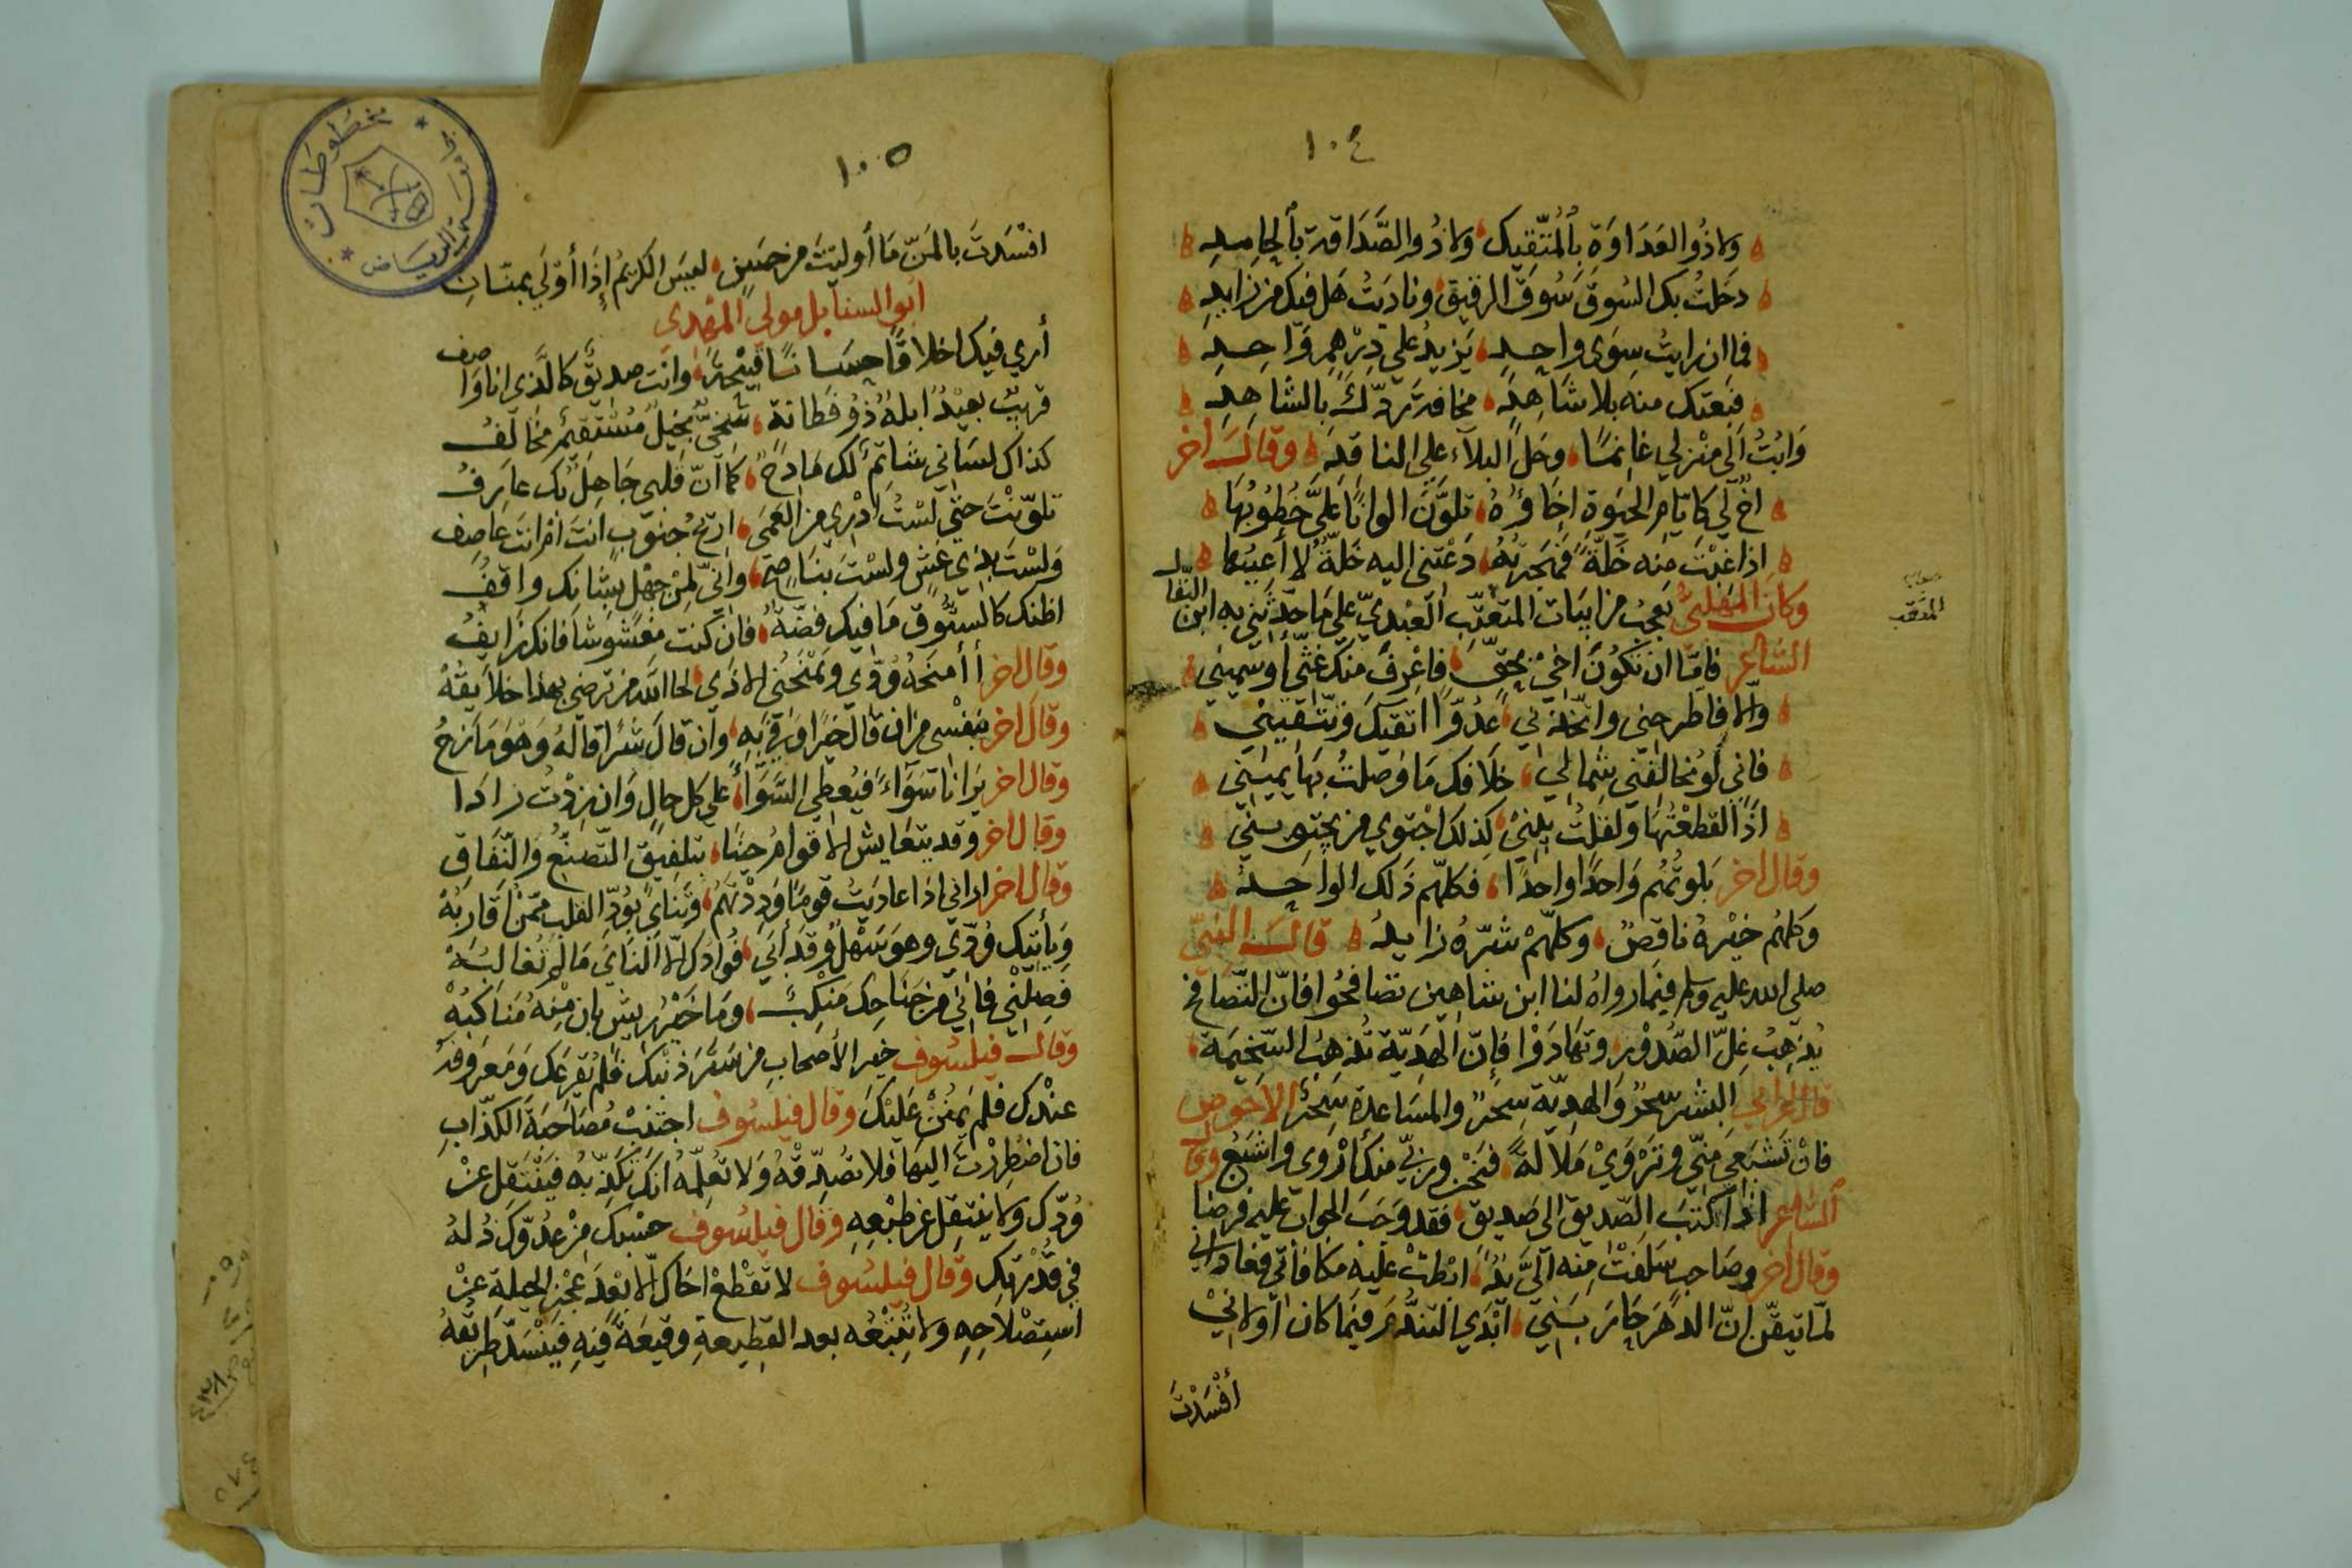 ١٠٤
ولا ذُو العَدَاوَةِ بالمُتّقِيك ولا ذُو الصَّدَاقة بالحامِدِ
دخلتُ بك السُوقَ سُوقَ الرقيق ونادَيتُ هل فيك من زايدِ
فما ان رايتُ سِوَى واحِدٍ يَزيدُ علي دِرْهمٍ وَاحِدِ
فبعتك منه بلا شاهِدٍ مخافةَ رَدّك بالشاهِدِ
وَابْتُ الَى منْزِلي غانمًا وحَلّ البلاء علي الناقدِ وقالَ اخر
اخٌ لي كايام الحَيوةِ اخاؤُهُ تلوَّنَ الوانًا عَليَّ خُطُوبُها
اذا غبْتُ منه خَلّةً فهَجَرتُهُ دَعَتنى اليه خَلّةٌ لا أعيبُها
وكان المهَلبىُّ يعجبُ من ابيَات المثقّبِ العَبْديّ علي مَا حَدّثَنِي به ابن النقا
صوابه
المثقب
الشاعر فامّا ان تكُونَ اخي بحَقٍّ فاعْرِفَ منكَ غثّي أو سَميني
والا فاطرحنى واتخذني عدُوًّا اتقيكَ وتتّقيني
فاني لو تخالفني شِمالي خلافك مَا وَصلتُ بهَا يَميني
اذًا لقطعْتُها ولقلتُ بِيْنيْ كذلك اجْتوي من يجتويني
وقال اخر بَلوتُهُم وَاحدًا واحدًا فكلهّم ذلك الواحِدُ
وَكلهُم خيْرهُ ناقصٌ وكلّهمْ شرّهُ زايدُ قالَ النبىّ
صلي الله عليه وسلم فيمَا رواهُ لنا ابن شاهين تصَافحُوا فانّ التّصَافح
يُذهِبُ غِلّ الصُّدُوْرِ وتهَادَوْا فاِنّ الهَدِيّة تُذهِبُ السّخِيمَة
قال اعرابي البشر سِحْرٌ والهديّة سِحْرٌ والمسَاعدة سِحْرٌ الاحوَص
فانْ تَشبَعي منّي وتَرْوَيْ مَلالةً فنحْن وربّي منك أرْوى واشبَعُ وقال
الشاعر اذا كتبَ الصّديق الى صَديق فقد وجَبَ الجوابُ عليه فرضا
وقال اخر وصَاحبٍ سَلفتْ منه اليَّ يدٌ ابْطت عليه مكافاتي فعاداني
لمّا تيقّن انّ الدهَر حَارَبَني ابْدَي التندُّمَ فيمَا كان اولانيْ
أفْسَدْتَ
١٠٥
افْسَدتَ بالمَنّ مَا أوليتَ من حَسَنٍ ليسَ الكريمُ إذا أوْلَي بمنّانِ
ابو السنابل مولي المهدي
أري فيك اخلاقًا حِسَانًا قبيْحةً وانتَ صديقٌ كالّذي انا واصف
قريبٌ بعيْدٌ ابلهٌ ذُو فَطانة سَخىٌّ بخيْلٌ مُسْتقيْمٌ مخالفُ
كذاك لسَاني شاتِمٌ لك مَادحٌ كمَا انّ قلبي جَاهِلٌ بك عارفُ
تلوّنْتَ حتي لسْتُ ادْرِي من العَمَى اريحُ جنوبٍ انت ام انتَ عاصف
ولسْتَ بذي غشٍّ ولسْت بناصح وانّي لمِنْ جهْل بشانك واقفُ
اظنك كالسّتُوق مَا فيك فضّةٌ فان كنت مغشُوشا فانك زايفُ
وقال اخر أأمنَحهُ وُدّي ويَمْنَحُني الاذي لحا الله من ترضي بهذا خلايقُهْ
وقال اخر بنفْسي من ان قال خيرًا وفي به وان قال شرًا قالهُ وَهْوَ مَازحُ
وقال اخر يرَانا سَوَاءً فيُعطي السَّوَاءَ علي كل حالٍ وان زِدْت زادا
وقال اخر وقد يتعَايش الاقوامُ حينًا بتلفيق التّصنّعُ والنّفَاق
وقال اخر اراني اذا عاديتُ قومًا وَدِدْتهُمْ وتنايَ بوُدّ القلب ممّنْ اقاربُهْ
وَيأتيك وُدّي وهو سَهْلٌ وقد أبَي فوادكَ الا النايَ مَا لَم تُغالبُهْ
فصِلني فاني من جَنَاحك مَنكِبٌ ومَا خيْرُ ريشٍ بان مِنهُ مَناكبُهْ
وقالَ فيلسُوف خير الأصحابِ من سَتَرَ ذنبَك فلم يُقرعكَ ومَعرُوفهُ
عندك فلم يَمنُنْ عَليْكَ وقال فيلسُوف اجتنِبْ مُصَاحَبَةَ الكذّابِ
فان اضْطررْتَ اليهَا فلا تُصَدِّقْهُ وَلا تعُلِمْهُ انك تكذّبهُ فيَنْتقِل عنْ
وُدّك ولا ينتقِل عن طبْعِهِ وقال فيلسُوف حسْبك مِنْ عدُوّكَ ذلهُ
في قدْرَتِك وقال فيلسُوف لا تقْطعْ اخاك الّا بعْدَ عجْز الحيلةِ عنْ
استِصْلاحِهِ ولا تُتبْعْه بعد القطِيعةِ وقيعَةً فيْهِ فيَنْسَدّ طريقُهُ
مخطوطات
جامعة الرياض